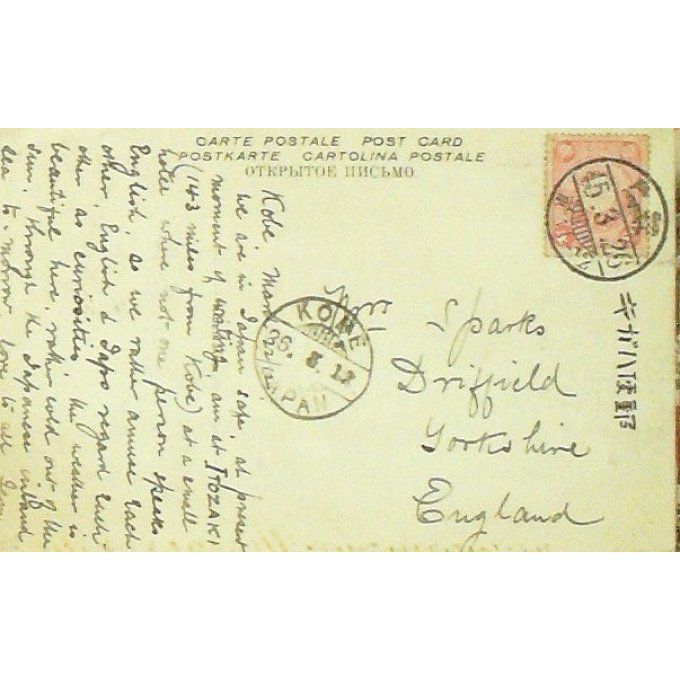 CARTE POSTALE POST CARD
POSTKARTE CARTOLINA POSTALE
ОТКРЫТОЕ ПИСЬМО
Kobe Mar 22/12
we are in Japan safe, at present
moment of writing am at ITOZAKI
(143 miles from Kobe) at a small
hotel where not one person speaks
English, as we rather amuse each
other, English & Japs regard each
other as curiosities the weather is
beautiful here, rather cold out of the
sun, through the Japanese inland
sea to-morrow love to all
KOBE
JAPAN
Sparks
Driffield
Yorkshire
England
45.3.26